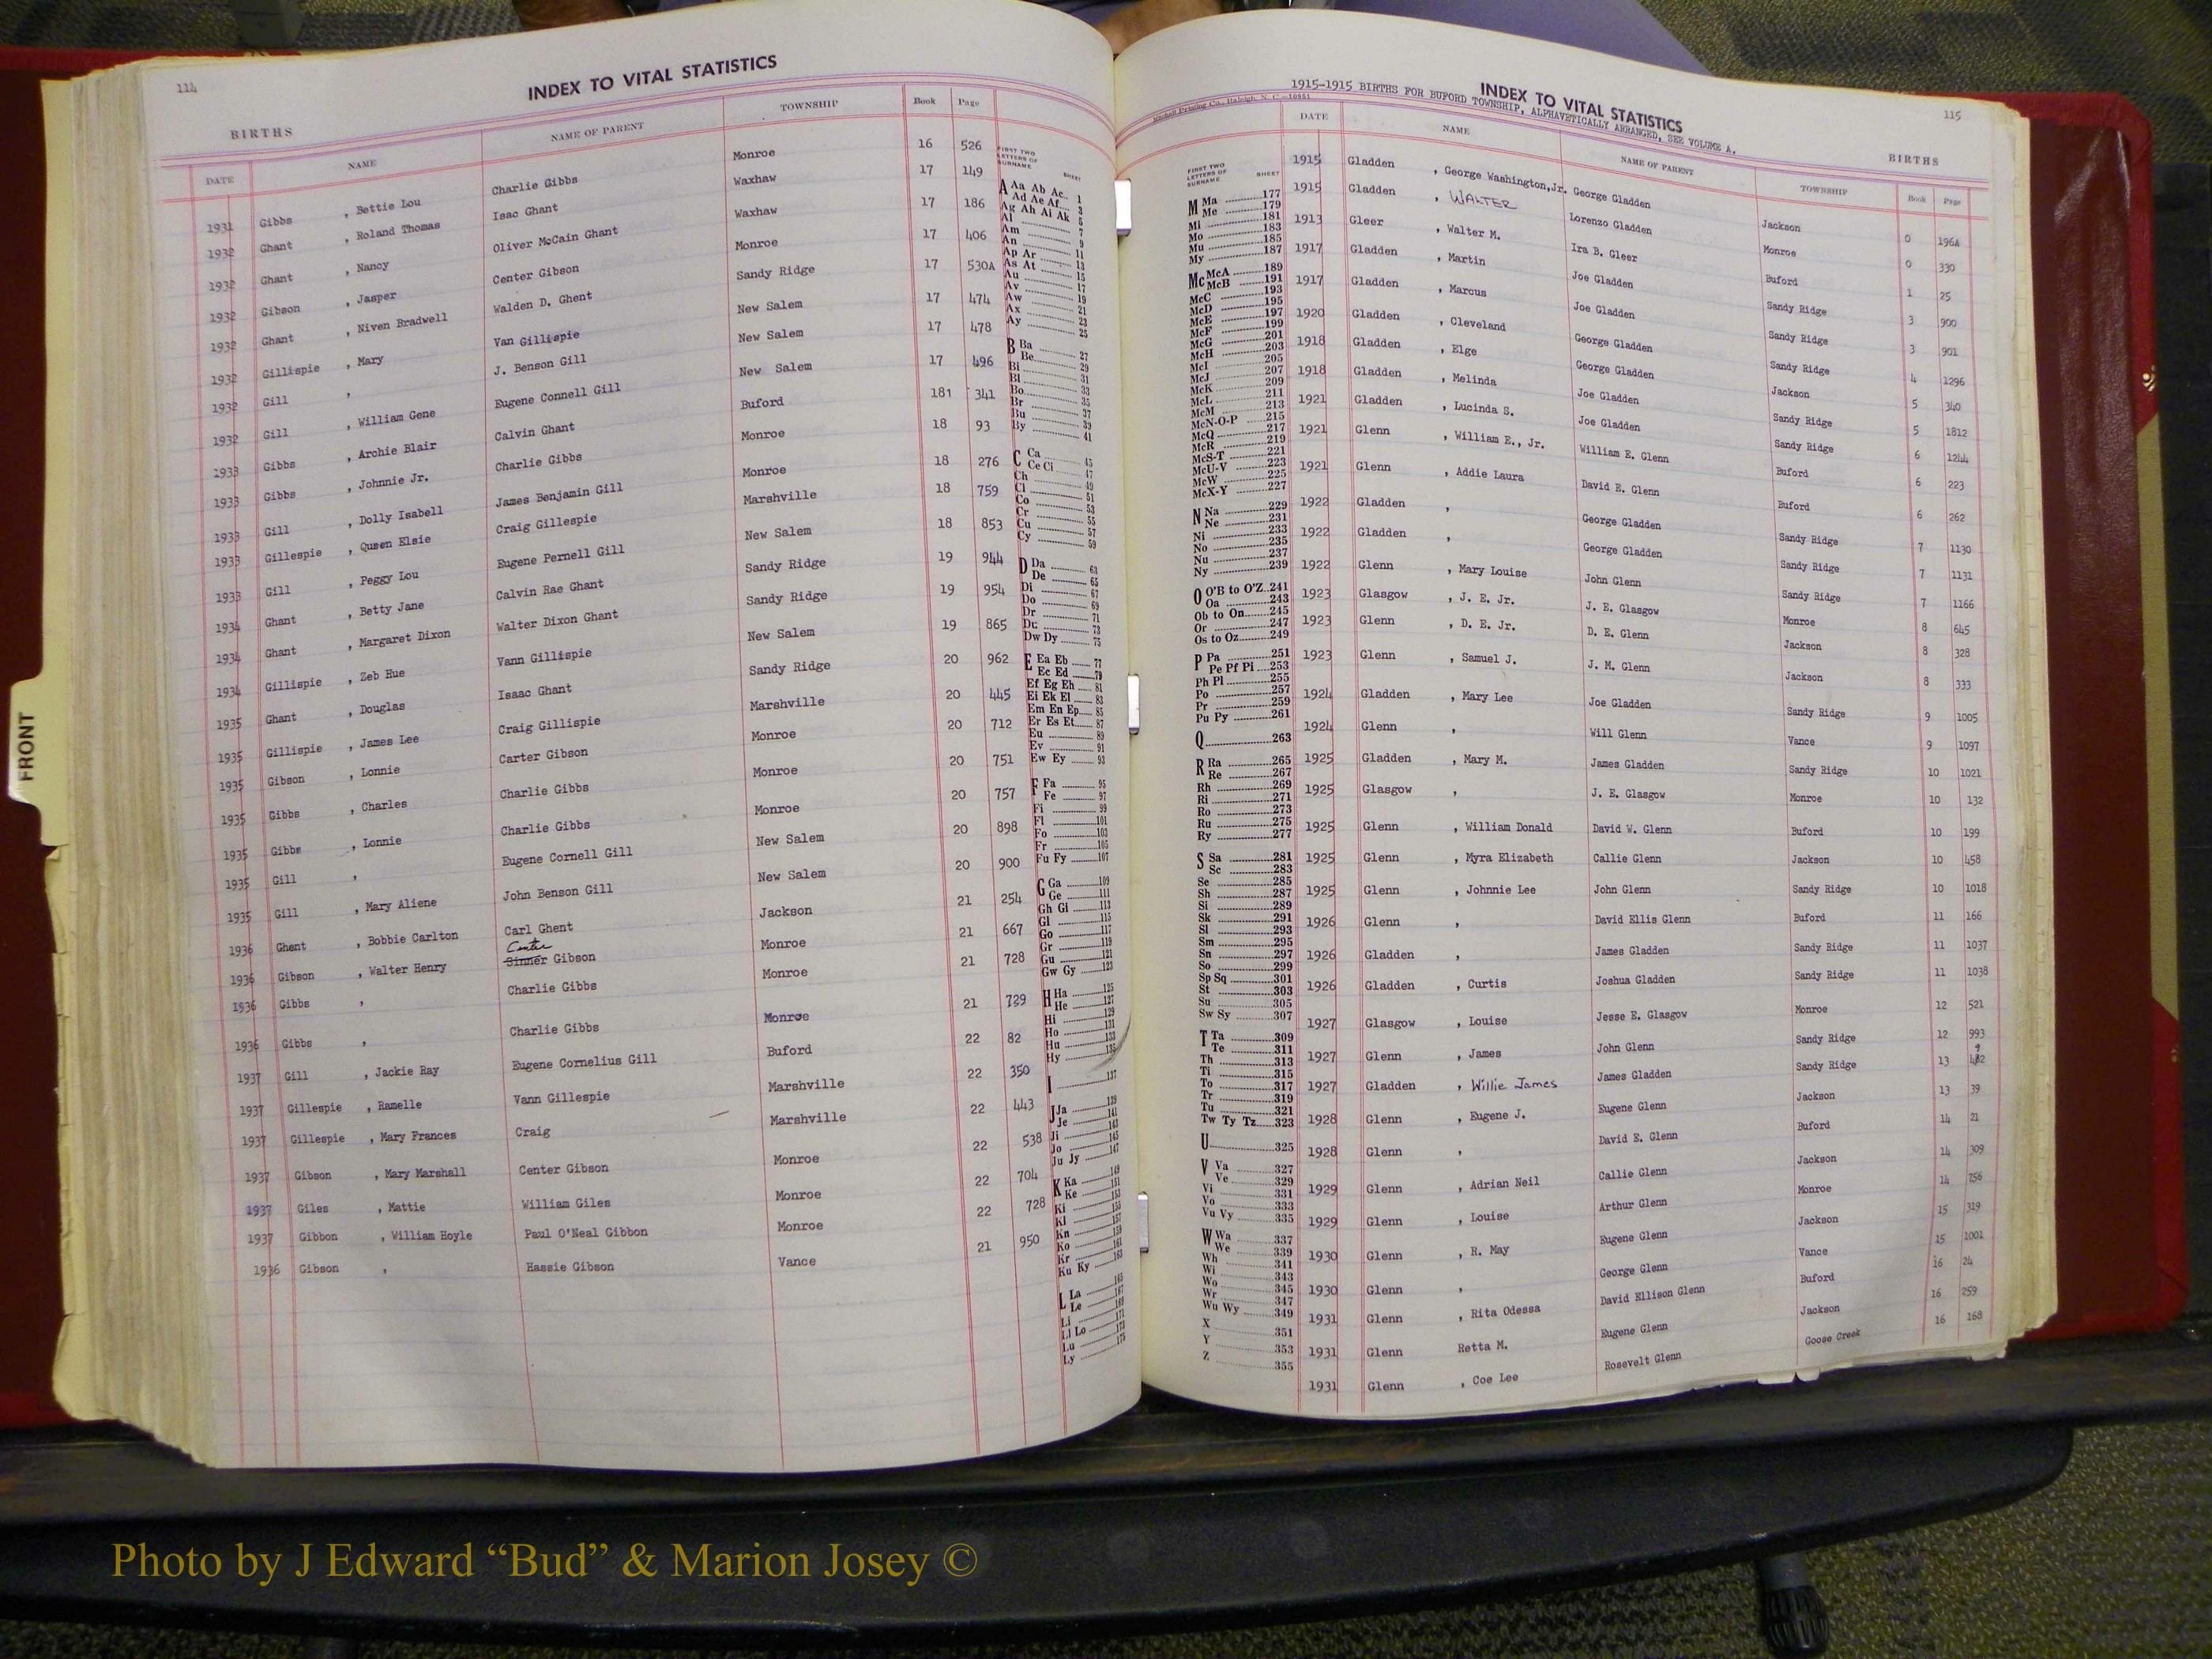 114
INDEX TO VITAL STATISTICS
BIRTHS
DATE NAME NAME OF PARENT TOWNSHIP Book Page
1931 Gibbs , Bettie Lou Charlie Gibbs Monroe 16 526
1932 Ghant , Roland Thomas Isac Ghant Waxhaw 17 149
1932 Ghant , Nancy Oliver McCain Ghant Waxhaw 17 186
1932 Gibson , Jasper Center Gibson Monroe 17 406
1932 Ghant , Niven Bradwell Walden D. Ghent Sandy Ridge 17 530A
1932 Gillispie , Mary Van Gillispie New Salem 17 474
1932 Gill , J. Benson Gill New Salem 17 478
1932 Gill , William Gene Eugene Connell Gill New Salem 17 496
1933 Gibbs , Archie Blair Calvin Ghant Buford 181 341
1933 Gibbs , Johnnie Jr. Charlie Gibbs Monroe 18 93
1933 Gill , Dolly Isabell James Benjamin Gill Monroe 18 276
1933 Gillespie , Queen Elsie Craig Gillespie Marshville 18 759
1933 Gill , Peggy Lou Eugene Pernell Gill New Salem 18 853
1934 Ghant , Betty Jane Calvin Rae Ghant Sandy Ridge 19 944
1934 Ghant , Margaret Dixon Walter Dixon Ghant Sandy Ridge 19 954
1934 Gillispie , Zeb Hue Vann Gillispie New Salem 19 865
1935 Ghant , Douglas Isaac Ghant Sandy Ridge 20 962
1935 Gillispie , James Lee Craig Gillispie Marshville 20 445
1935 Gibson , Lonnie Carter Gibson Monroe 20 712
1935 Gibbs , Charles Charlie Gibbs Monroe 20 751
1935 Gibbs , Lonnie Charlie Gibbs Monroe 20 757
1935 Gill , Eugene Cornell Gill New Salem 20 898
1935 Gill , Mary Aliene John Benson Gill New Salem 20 900
1936 Ghent , Bobbie Carlton Carl Ghent Jackson 21 254
Center
1936 Gibson , Walter Henry Sinner Gibson Monroe 21 667
1936 Gibbs , Charlie Gibbs Monroe 21 728
1936 Gibbs , Charlie Gibbs Monroe 21 729
1937 Gill , Jackie Ray Eugene Cornelius Gill Buford 22 82
1937 Gillespie , Ramelle Vann Gillespie Marshville 22 350
1937 Gillespie , Mary Frances Craig Marshville 22 443
1937 Gibson , Mary Marshall Center Gibson Monroe 22 538
1937 Giles , Mattie William Giles Monroe 22 704
1937 Gibbon , William Hoyle Paul O'Neal Gibbon Monroe 22 728
1936 Gibson , Hassie Gibson Vance 21 950
FIRST TWO LETTERS OF SURNAME SHEET
A Aa Ab Ac 1
Ad Ae Af 3
Ag Ah Ai Ak 5
Al 7
Am 9
An 11
Ap Ar 13
As At 15
Au 17
Av 19
Aw 21
Ax 23
Ay 25
B Ba 27
Be 29
Bi 31
Bl 33
Bo 35
Br 37
Bu 39
By 41
C Ca 45
Ce Ci 47
Ch 49
Cl 51
Co 53
Cr 55
Cu 57
Cy 59
D Da 63
De 65
Di 67
Do 69
Dr 71
Du 73
Dw Dy 75
E Ea Eb 77
Ec Ed 79
Ef Eg Eh 81
Ei Ek El 83
Em En Ep 85
Er Es Et 87
Eu 89
Ev 91
Ew Ey 93
F Fa 95
Fe 97
Fi 99
Fl 101
Fo 103
Fr 105
Fu Fy 107
G Ga 109
Ge 111
Gh Gi 113
Gl 115
Go 117
Gr 119
Gu 121
Gw Gy 123
H Ha 125
He 127
Hi 129
Ho 131
Hu 133
Hy 135
I 137
J Ja 139
Je 141
Ji 143
Jo 145
Ju Jy 147
K Ka 149
Ke 151
Ki 153
Kl 155
Kn 157
Ko 159
Kr 161
Ku Ky 163
L La 165
Le 167
Li 169
Ll Lo 171
Lu 173
Ly 175
1915-1915 BIRTHS FOR BUFORD TOWNSHIP, ALPHAVETICALLY ARRANGED, SEE VOLUME A.
Mitchell Printing Co., Raleigh, N. C.
INDEX TO VITAL STATISTICS
115
BIRTHS
DATE NAME NAME OF PARENT TOWNSHIP Book Page
1915 Gladden , George Washington,Jr. George Gladden Jackson 0 196A
1915 Gladden , WALTER Lorenzo Gladden Monroe 0 330
1913 Gleer , Walter M. Ira B. Gleer Buford 1 25
1917 Gladden , Martin Joe Gladden Sandy Ridge 3 900
1917 Gladden , Marcus Joe Gladden Sandy Ridge 3 901
1920 Gladden , Cleveland George Gladden Sandy Ridge 4 1296
1918 Gladden , Elge George Gladden Jackson 5 340
1918 Gladden , Melinda Joe Gladden Sandy Ridge 5 1812
1921 Gladden , Lucinda S. Joe Gladden Sandy Ridge 6 1244
1921 Glenn , William E., Jr. William E. Glenn Buford 6 223
1921 Glenn , Addie Laura David E. Glenn Buford 6 262
1922 Gladden , George Gladden Sandy Ridge 7 1130
1922 Gladden , George Gladden Sandy Ridge 7 1131
1922 Glenn , Mary Louise John Glenn Sandy Ridge 7 1166
1923 Glasgow , J. E. Jr. J. E. Glasgow Monroe 8 645
1923 Glenn , D. E. Jr. D. E. Glenn Jackson 8 328
1923 Glenn , Samuel J. J. M. Glenn Jackson 8 333
1924 Gladden , Mary Lee Joe Gladden Sandy Ridge 9 1005
1924 Glenn , Will Glenn Vance 9 1097
1925 Gladden , Mary M. James Gladden Sandy Ridge 10 1021
1925 Glasgow , J. E. Glasgow Monroe 10 132
1925 Glenn , William Donald David W. Glenn Buford 10 199
1925 Glenn , Myra Elizabeth Callie Glenn Jackson 10 458
1925 Glenn , Johnnie Lee John Glenn Sandy Ridge 10 1018
1926 Glenn , David Ellis Glenn Buford 11 166
1926 Gladden , James Gladden Sandy Ridge 11 1037
1926 Gladden , Curtis Joshua Gladden Sandy Ridge 11 1038
1927 Glasgow , Louise Jesse E. Glasgow Monroe 12 521
1927 Glenn , James John Glenn Sandy Ridge 12 993
1927 Gladden , Willie James James Gladden Sandy Ridge 13
1928 Glenn , Eugene J. Eugene Glenn Jackson 13 39
1928 Glenn , David E. Glenn Buford 14 21
1929 Glenn , Adrian Neil Callie Glenn Jackson 14 309
1929 Glenn , Louise Arthur Glenn Monroe 14 756
1930 Glenn , R. May Eugene Glenn Jackson 15 319
1930 Glenn , George Glenn Vance 15 1001
1931 Glenn , Rita Odessa David Ellison Glenn Buford 16 24
1931 Glenn Retta M. Eugene Glenn Jackson 16 259
1931 Glenn , Coe Lee Rosevelt Glenn Goose Creek 16 168
FIRST TWO LETTERS OF SURNAME SHEET
M Ma 177
Me 179
Mi 181
Mo 183
Mu 185
My 187
Mc McA 189
McB 191
McC 193
McD 195
McE 197
McF 199
McG 201
McH 203
McI 205
McJ 207
McK 209
McL 211
McM 213
McN-O-P 215
McQ 217
McR 219
McS-T 221
McU-V 223
McW 225
McX-Y 227
N Na 229
Ne 231
Ni 233
No 235
Nu 237
Ny 239
O O'B to O'Z 241
Oa 243
Ob to On 245
Or 247
Os to Oz 249
P Pa 251
Pe Pf Pi 253
Ph Pl 255
Po 257
Pr 259
Pu Py 261
Q 263
R Ra 265
Re 267
Rh 269
Ri 271
Ro 273
Ru 275
Ry 277
S Sa 281
Sc 283
Se 285
Sh 287
Si 289
Sk 291
Sl 293
Sm 295
Sn 297
So 299
Sp Sq 301
St 303
Su 305
Sw Sy 307
T Ta 309
Te 311
Th 313
Ti 315
To 317
Tr 319
Tu 321
Tw Ty Tz 323
U 325
V Va 327
Ve 329
Vi 331
Vo 333
Vu Vy 335
W Wa 337
We 339
Wh 341
Wi 343
Wo 345
Wr 347
Wu Wy 349
X 351
Y 353
Z 355
FRONT
Photo by J Edward “Bud” & Marion Josey ©